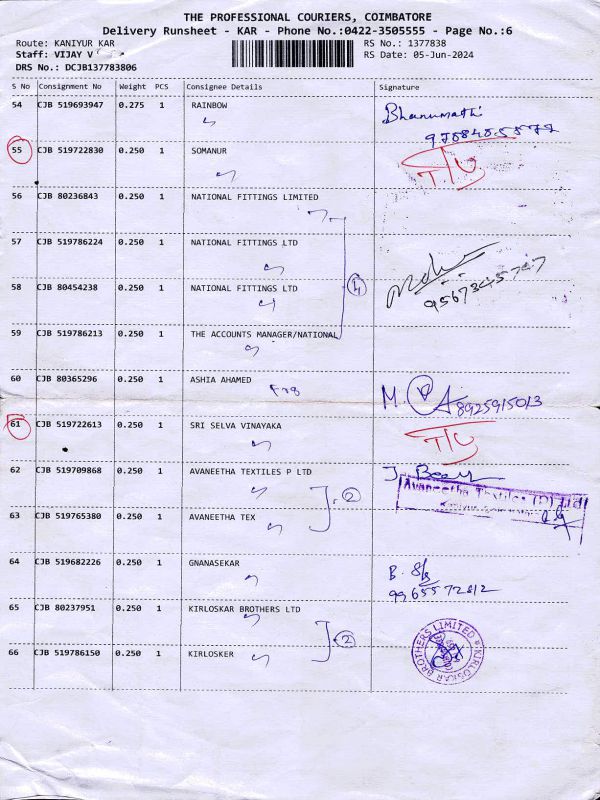 THE PROFESSIONAL COURIERS, COIMBATORE
Delivery Runsheet - KAR - Phone No.:0422-3505555 - Page No.:6
Route: KANIYUR KAR
RS No.: 1377838
Staff: VIJAY V
RS Date: 05-Jun-2024
DRS No.: DCJB137783806
S No Consignment No Weight PCS Consignee Details Signature
54 CJB 519693947 0.275 1 RAINBOW Bhanumathi
55 CJB 519722830 0.250 1 SOMANUR T/U
56 CJB 80236843 0.250 1 NATIONAL FITTINGS LIMITED
57 CJB 519786224 0.250 1 NATIONAL FITTINGS LTD
58 CJB 80454238 0.250 1 NATIONAL FITTINGS LTD 4
9567345747
59 CJB 519786213 0.250 1 THE ACCOUNTS MANAGER/NATIONAL
60 CJB 80365296 0.250 1 ASHIA AHAMED M.
8925915013
61 CJB 519722613 0.250 1 SRI SELVA VINAYAKA T/U
62 CJB 519709868 0.250 1 AVANEETHA TEXTILES P LTD
Avaneetha Textiles (P) Ltd
2
63 CJB 519765380 0.250 1 AVANEETHA TEX
64 CJB 519682226 0.250 1 GNANASEKAR B.
9965572812
65 CJB 80237951 0.250 1 KIRLOSKAR BROTHERS LTD
2
66 CJB 519786150 0.250 1 KIRLOSKER KIRLOSKAR BROTHERS LIMITED